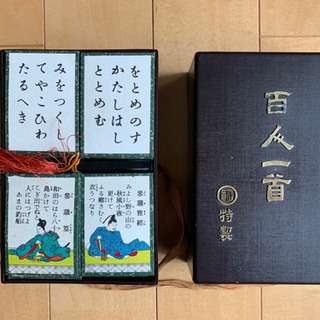 をとめのす
かたしはし
ととめむ
みをつくし
てやこひわ
たるへき
参議雅経
みよし野の山の
秋風小夜
更けて
ふる郷さむく
衣うつなり
参議篁
和田のはら八十
島かけて
こぎ出でぬと
人にはつげよ
あまの釣船
百人一首
特製